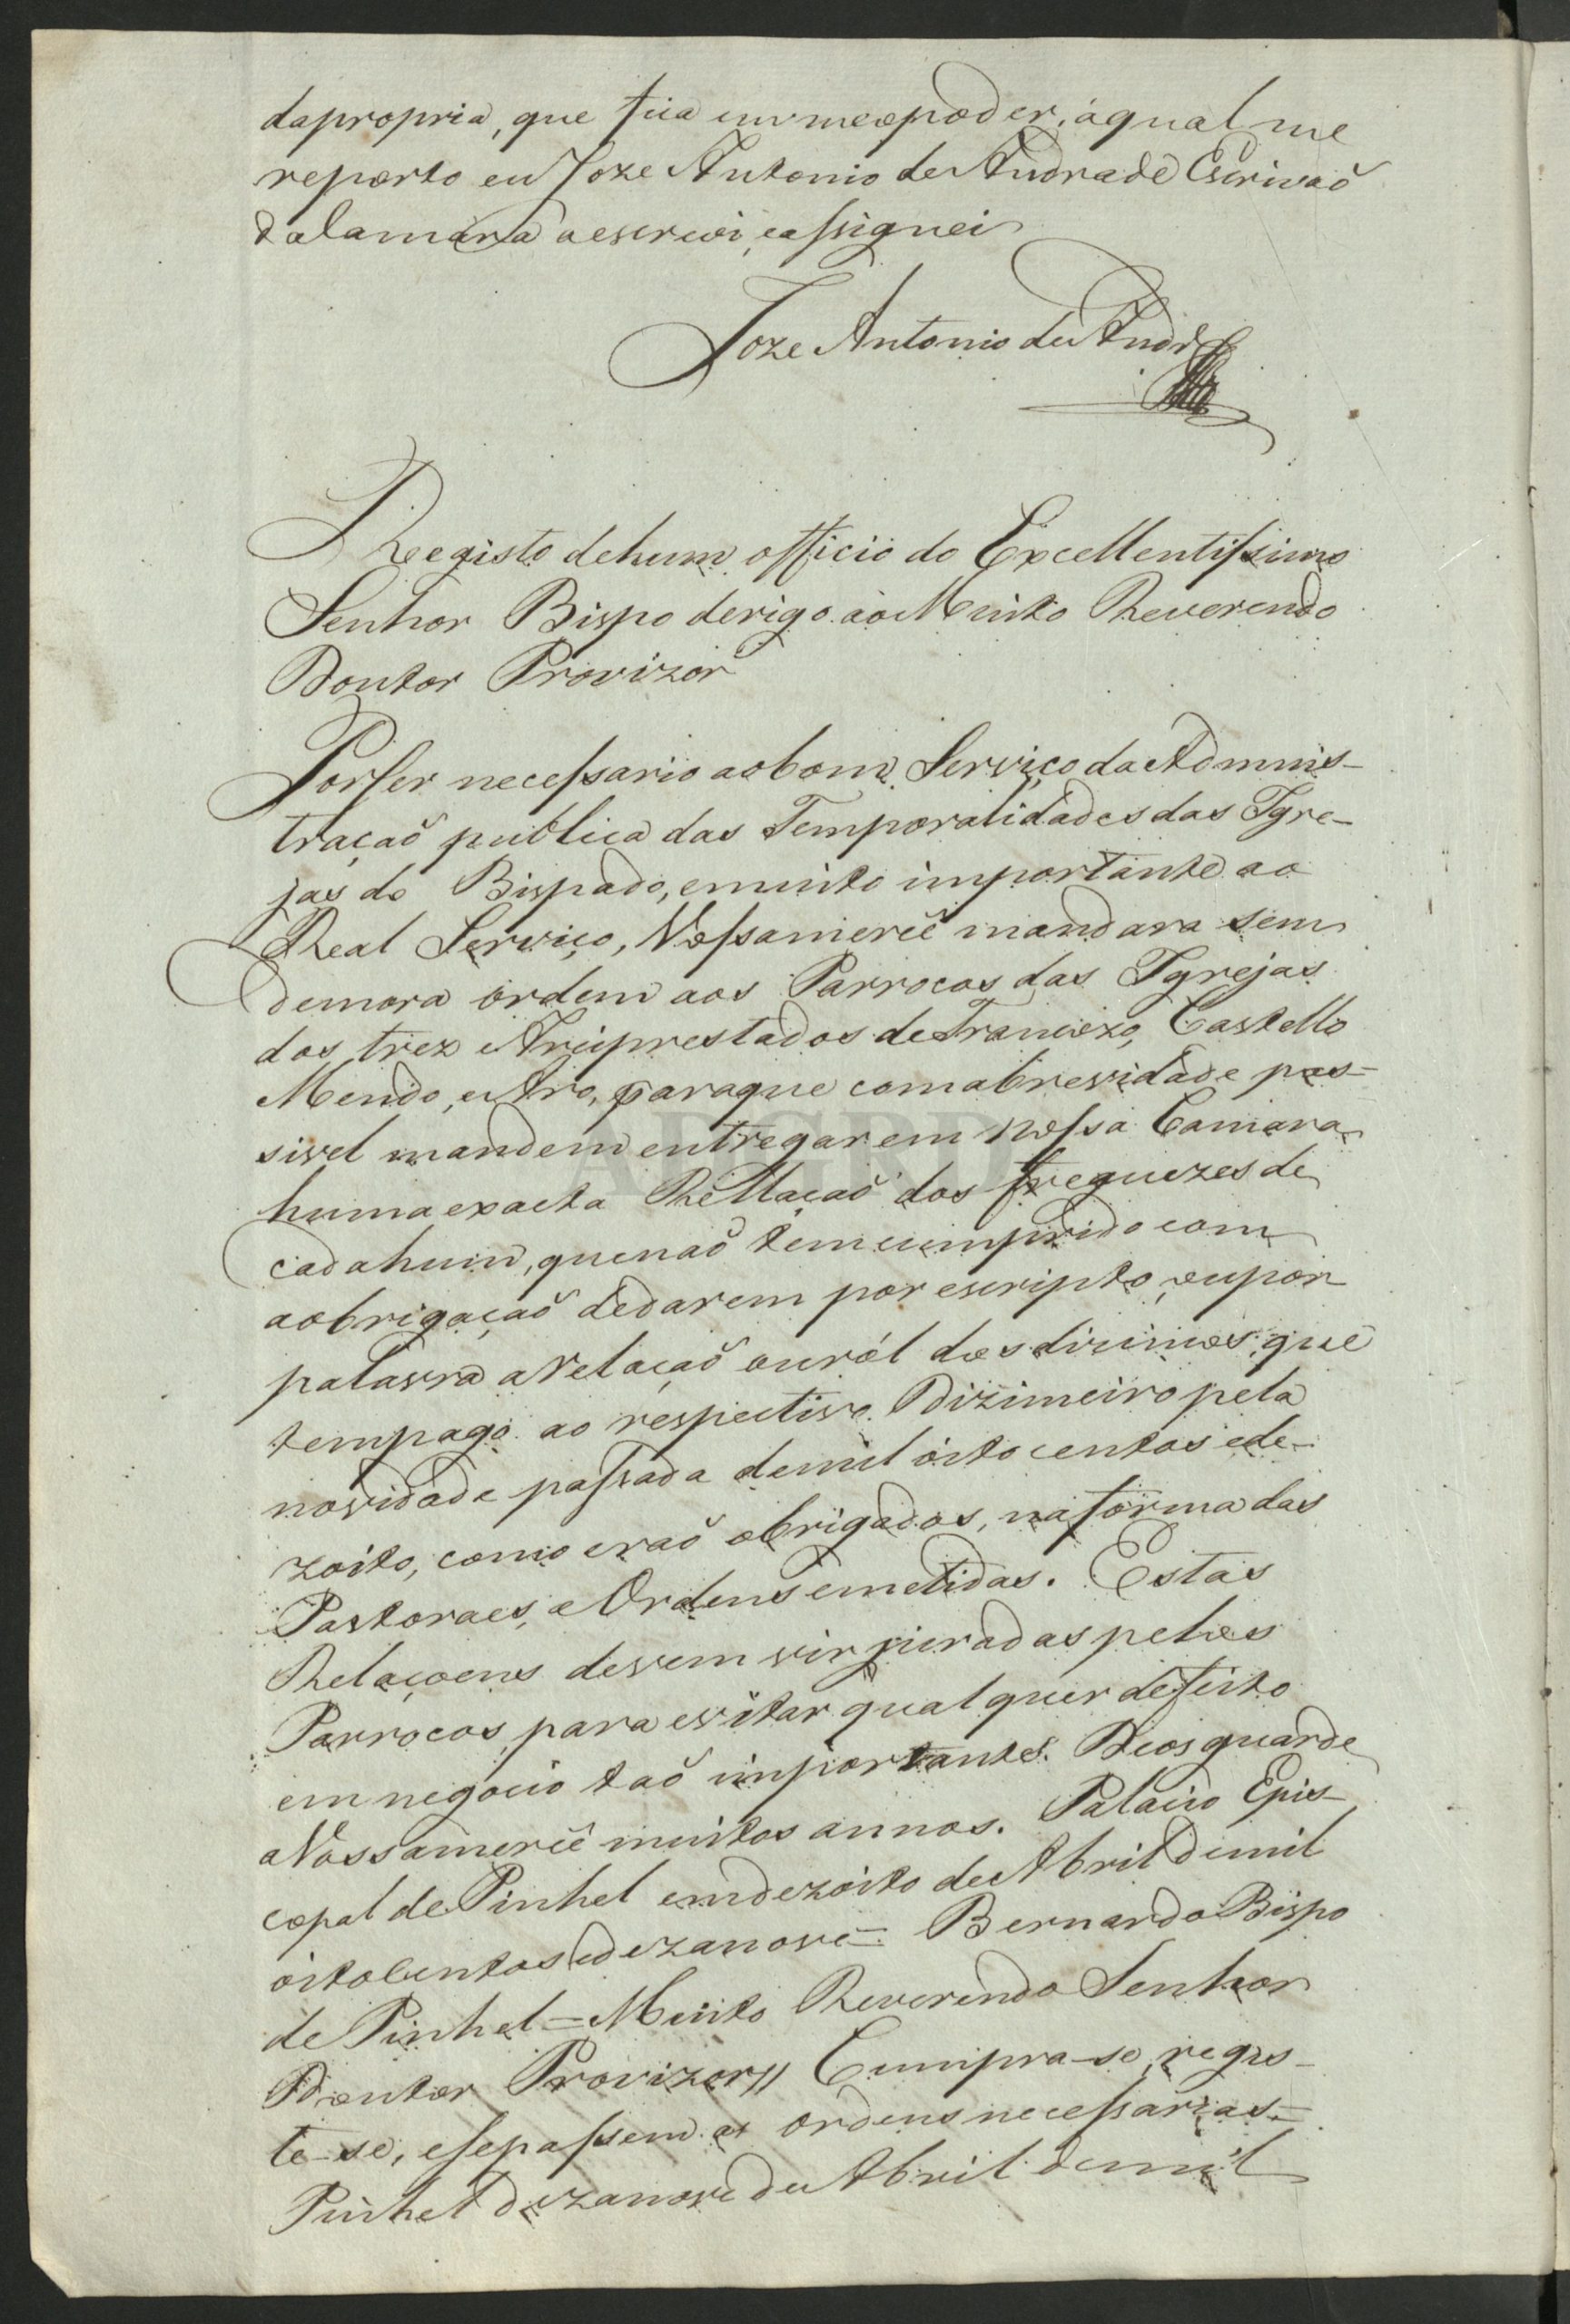 dapropria, que fica em meo poder, aqual me
reporto eu Joze Antonio de Andrade Escrivaõ
da Camara o escrevi, eassignei
Joze Antonio de Andr.e
Reegisto dehum officio do Excellentissimo
Senhor Bispo derigo ao Muito Reverendo
Doutor Provizor
Porser necessario aobom Serviço da Adminis-
traçaõ publica das Temporalidades das Igre-
jas do Bispado, emuito importante ao
Real Serviço, Vossamercê mandara sem
demora ordem aos Parrocos das Igrejas
dos trez Arciprestados de Trancozo, Castello
Mendo, e Aro, paraque comabrevidade pos=
sivel mandem entregar em Nossa Camara
huma exacta Rellaçaõ dos freguezes de
cadahum, quenaõ tem cumprido com
aobrigaçaõ dedarem por escripto, oupor
palavra aRelaçaõ ouról dos dizimos, que
tempago ao respectivo Dizimeiro pela
novidade passada demil oito centos ede-
zoito, como eraõ obrigados, naforma das
Pastoraes, e Ordens emetidas. Estas
Relaçoens devem vir juradas pelos
Parrocos, para evitar qualquer defeito
em negocio taõ importante. Deos guarde
aVossamercê muitos annos. Palacio Epis-
copal de Pinhel emdezoito de Abril demil
oito Centos edezanove = Bernardo Bispo
de Pinhel = Muito Reverendo Senhor
Doutor Provizor // Cumpra-se, regis-
te-se, esepassem as ordens necessarias =
Pinhel dezanove de Abril de mil
ADGRD